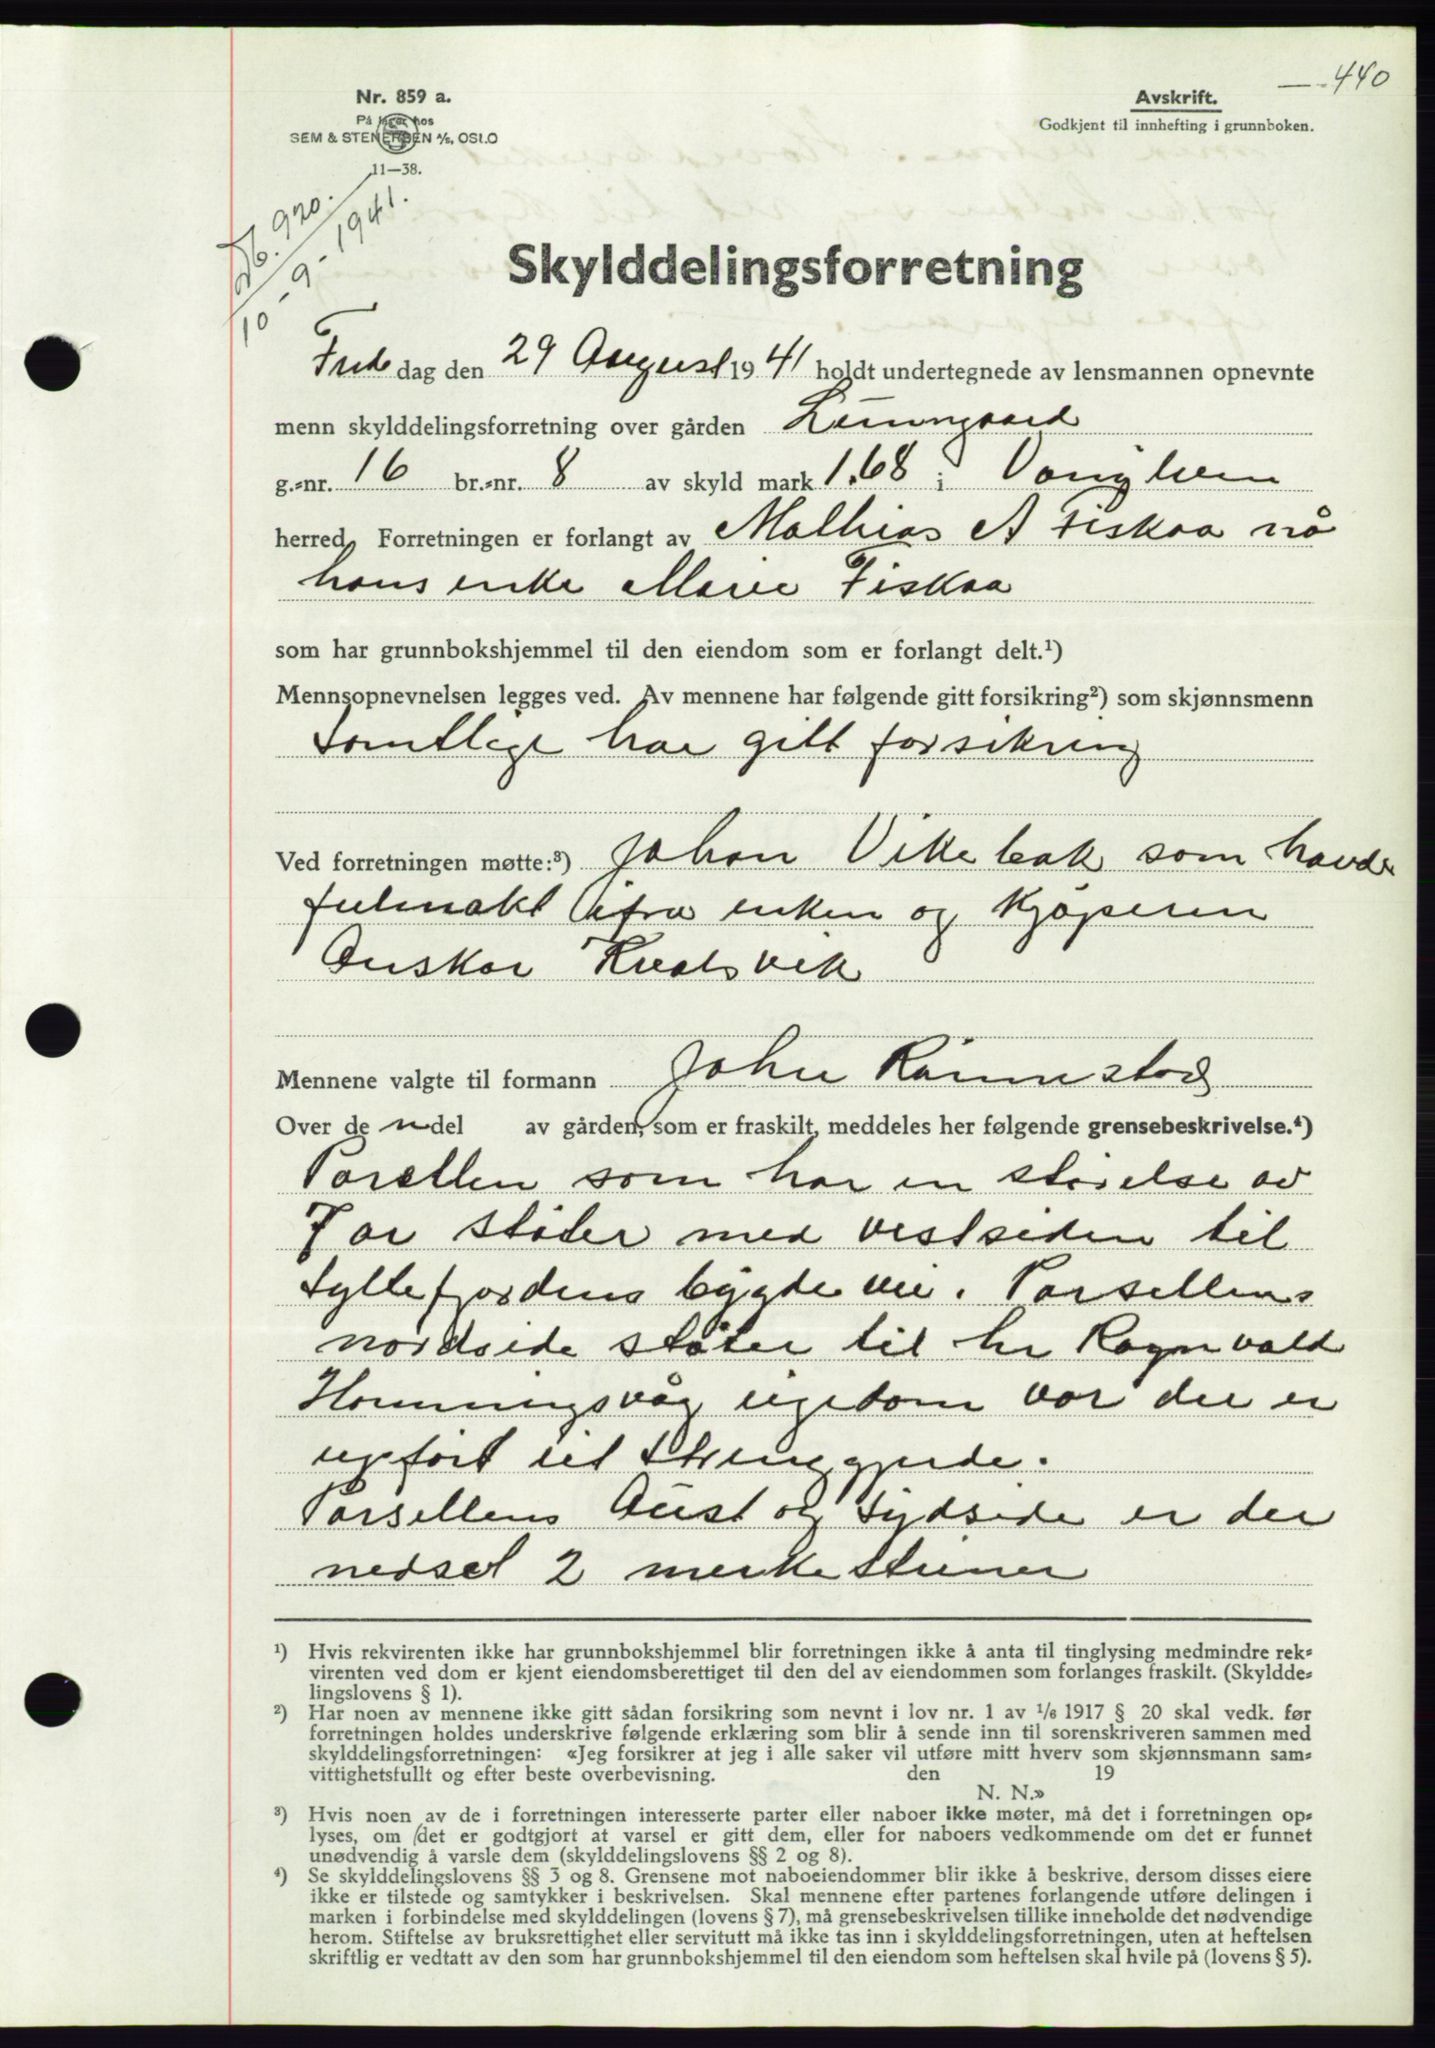 440
Nr. 859 a.
På lager hos
SEM & STENERSEN A/S, OSLO
11—38.
Avskrift.
Godkjent til innhefting i grunnboken.
920.
10-9-1941.
Skylddelingsforretning
Fredag den 29 August 1941 holdt undertegnede av lensmannen opnevnte
menn skylddelingsforretning over gården
g.=nr. 16 br.=nr. 8 av skyld mark 1.68 i
herred. Forretningen er forlangt av Mathias A Fiskaa nå
hans enke Marie Fiskaa
som har grunnbokshjemmel til den eiendom som er forlangt delt.¹)
Mennsopnevnelsen legges ved. Av mennene har følgende gitt forsikring²) som skjønnsmenn
Samtlige har gitt forsikring
Ved forretningen møtte:³) Johan Vikebak som havde
fulmakt ifra enken og Kjøperen
Anskar Kvalsvik
Mennene valgte til formann John
Over de n del av gården, som er fraskilt, meddeles her følgende grensebeskrivelse.⁴)
Parsellen som har en størelse av
7 ar støter med vestsiden til
Syltefjordens bygdevei. Parsellens
nordside støter til hr Ragnvald
Honningsvåg eigedom vor der er
upført eit strenggjerde.
Parsellens Aust og Sydside er der
nedset 2 merkesteiner
¹) Hvis rekvirenten ikke har grunnbokshjemmel blir forretningen ikke å anta til tinglysing medmindre rek=
virenten ved dom er kjent eiendomsberettiget til den del av eiendommen som forlanges fraskilt. (Skyldde=
lingslovens § 1).
²) Har noen av mennene ikke gitt sådan forsikring som nevnt i lov nr. 1 av 1/6 1917 § 20 skal vedk. før
forretningen holdes underskrive følgende erklæring som blir å sende inn til sorenskriveren sammen med
skylddelingsforretningen: «Jeg forsikrer at jeg i alle saker vil utføre mitt hverv som skjønnsmann sam=
vittighetsfullt og efter beste overbevisning. den 19
N. N.»
³) Hvis noen av de i forretningen interesserte parter eller naboer ikke møter, må det i forretningen op=
lyses, om det er godtgjort at varsel er gitt dem, eller for naboers vedkommende om det er funnet
unødvendig å varsle dem (skylddelingslovens §§ 2 og 8).
⁴) Se skylddelingslovens §§ 3 og 8. Grensene mot naboeiendommer blir ikke å beskrive, dersom disses eiere
ikke er tilstede og samtykker i beskrivelsen. Skal mennene efter partenes forlangende utføre delingen i
marken i forbindelse med skylddelingen (lovens § 7), må grensebeskrivelsen tillike inneholde det nødvendige
herom. Stiftelse av bruksrettighet eller servitutt må ikke tas inn i skylddelingsforretningen, uten at heftelsen
skriftlig er vedtatt av den som har grunnbokshjemmel til den eiendom som heftelsen skal hvile på (lovens § 5).